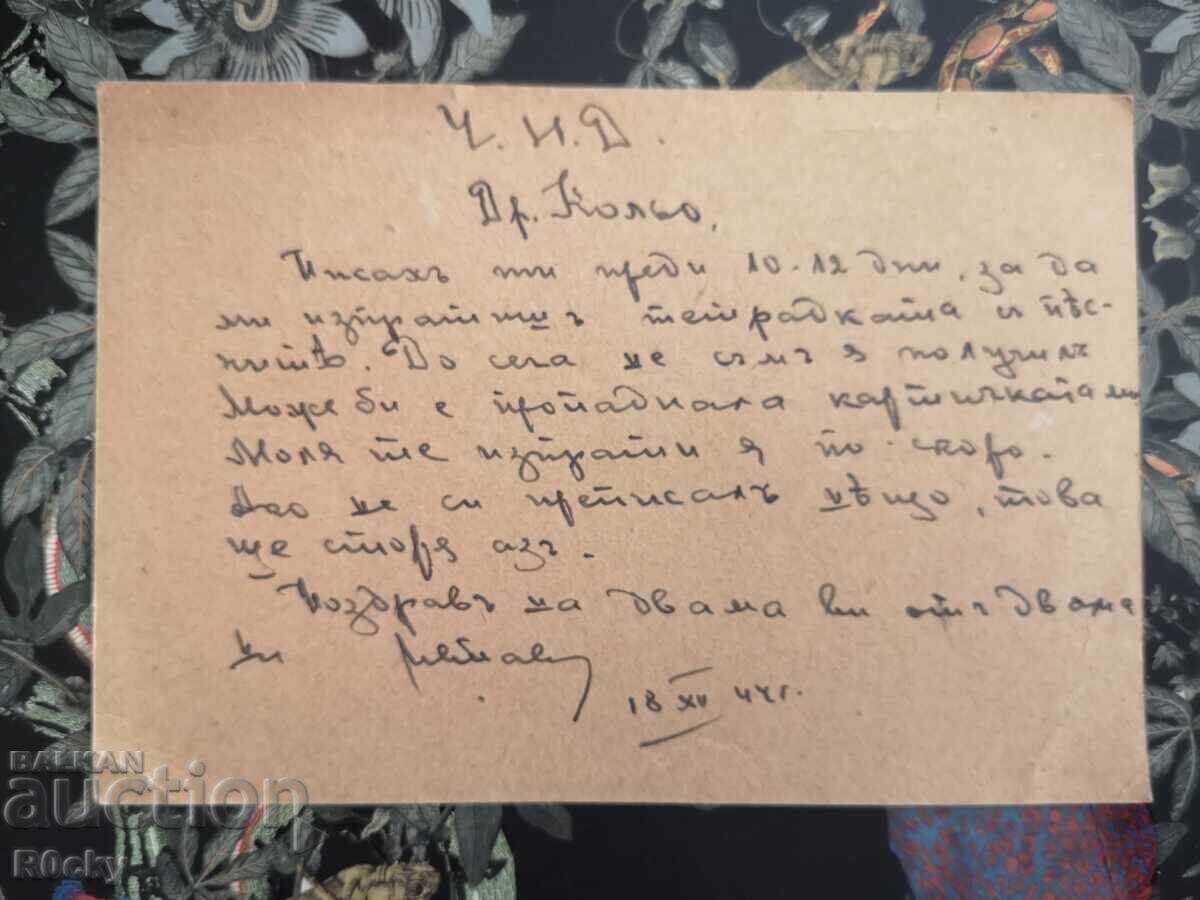 Ч. И. Д.
Др. Кольо,
Писахъ ти преди 10-12 дни, за да
ми изпратишъ тетрадката съ пѣс-
нитѣ. До сега не съмъ я получилъ
Може би е пропаднала картичката ми
Моля те изпрати я по скоро.
Ако не си преписалъ нѣщо, това
ще сторя азъ.
Поздравъ на двама ви отъ двама
ни
18 XII 44 г.
BALKAN
auction
R0cky